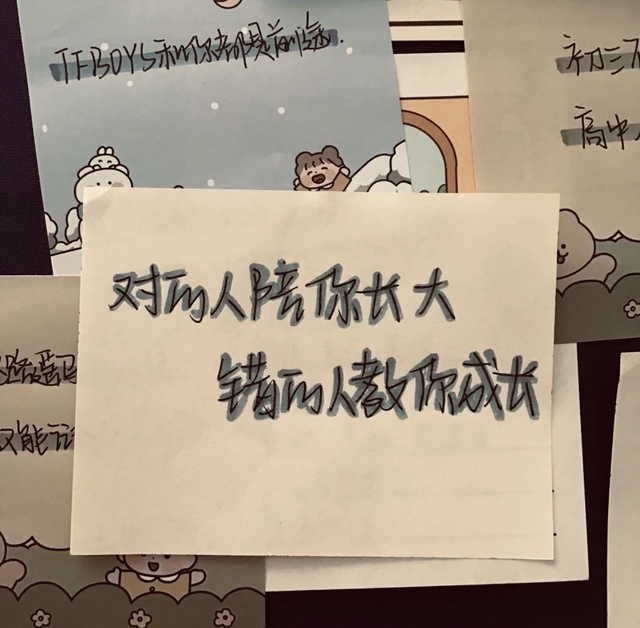 TFBOYS和你都是前途.
初三
高中
对的人陪你长大
错的人教你成长
路
又能